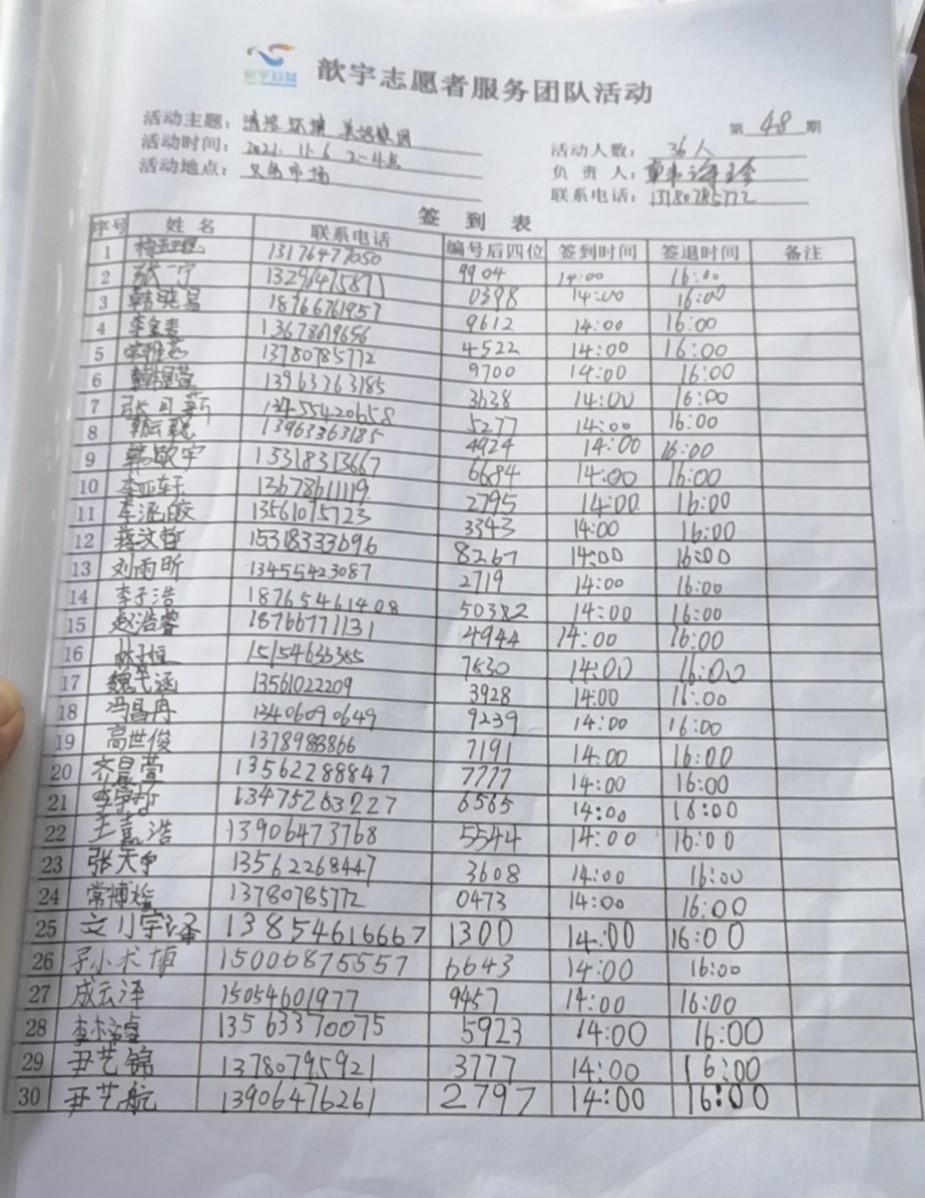 歆宇志愿者服务团队活动
第 48 期
活动主题：清洁环境 美丽校园
活动时间：2021. 11. 6 2-4点
活动地点：义乌市场
活动人数：36人
负责人：
联系电话：13780785772
签到表
序号 姓名 联系电话 编号后四位 签到时间 签退时间 备注
1 13176477050 9904 14:00 16:00
2 0398 14:00 16:00
3 韩晓易 18766761957 9612 14:00 16:00
4 李金壹 4522 14:00 16:00
5 常雅茗 13780785772 9700 14:00 16:00
6 13963363185 3638 14:00 16:00
7 张可新 13455420658 5277 14:00 16:00
8 韩云聪 13963363185 4924 14:00 16:00
9 韩敬宇 15318313667 6684 14:00 16:00
10 李亚轩 13678611119 2795 14:00 16:00
11 13561075723 3343 14:00 16:00
12 蒋文哲 15318333696 8267 14:00 16:00
13 刘雨昕 13455423087 2719 14:00 16:00
14 李子浩 18765461408 50382 14:00 16:00
15 赵浩睿 18766771131 4944 14:00 16:00
16 15154633385 7630 14:00 16:00
17 魏弋涵 13561022209 3928 14:00 16:00
18 冯昌冉 13406090649 9239 14:00 16:00
19 高世俊 1378988866 7191 14:00 16:00
20 齐昱萱 13562288847 7777 14:00 16:00
21 13475263227 6565 14:00 16:00
22 王嘉浩 13906473768 5544 14:00 16:00
23 张天宇 13562268447 3608 14:00 16:00
24 常博焱 13780785772 0473 14:00 16:00
25 13854616667 1300 14:00 16:00
26 15006875557 6643 14:00 16:00
27 成云泽 15054601977 9457 14:00 16:00
28 13563370075 5923 14:00 16:00
29 尹艺锦 13780795921 3777 14:00 16:00
30 尹艺航 13906476261 2797 14:00 16:00